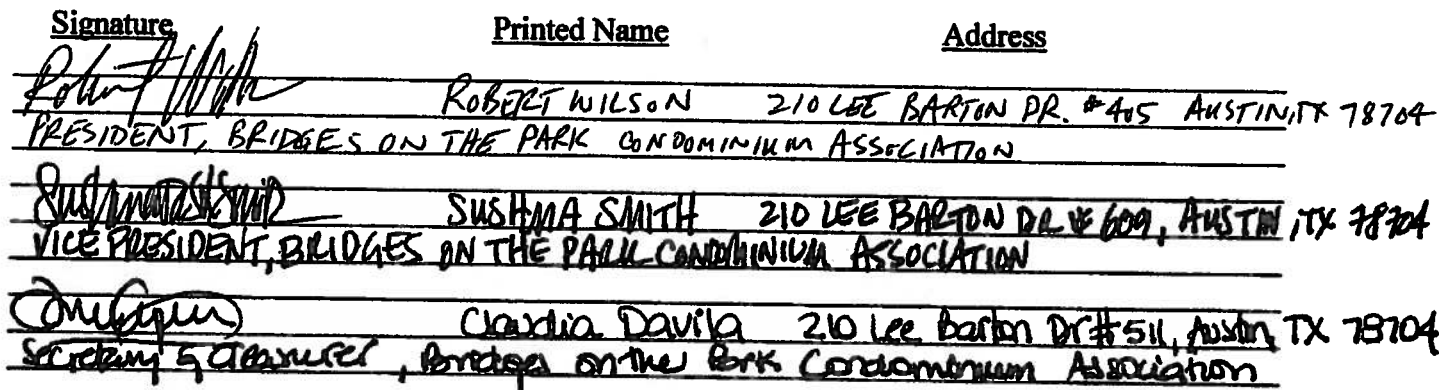 Signature Printed Name Address
Robert Wilson ROBERT WILSON 210 LEE BARTON DR. #405 AUSTIN, TX 78704
PRESIDENT, BRIDGES ON THE PARK CONDOMINIUM ASSOCIATION
Sushma Smith SUSHMA SMITH 210 LEE BARTON DR # 609, AUSTIN, TX 78704
VICE PRESIDENT, BRIDGES ON THE PARK CONDOMINIUM ASSOCIATION
Claudia Davila 210 Lee Barton Dr #511, Austin, TX 78704
Secretary & Treasurer, Bridges on the Park Condominium Association